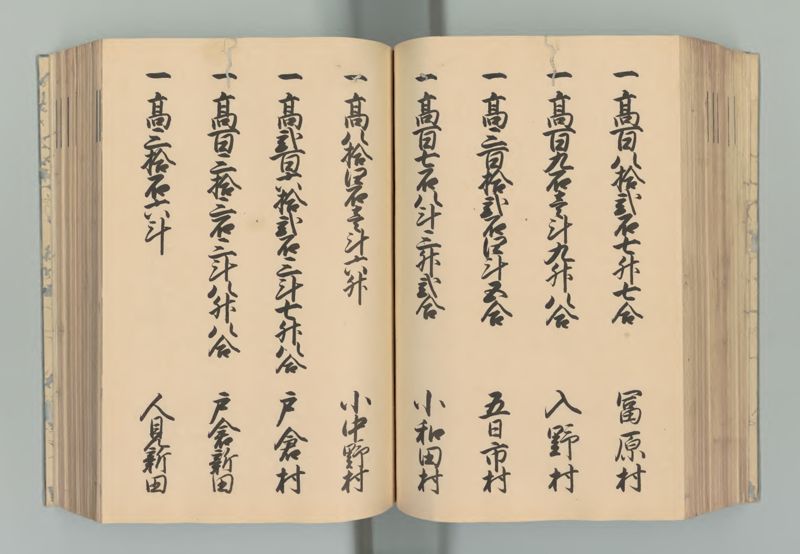 一高百八拾弐石七升七合 冨原村
一高百九石壱斗九升八合 入野村
一高三百拾弐石四斗五合 五日市村
一高百七石八斗三升弐合 小和田村
一高八拾四石壱斗六升 小中野村
一高弐百六拾弐石三斗七升八合 戸倉村
一高百三拾三石三斗八升八合 戸倉新田
一高三拾石六斗 人見新田